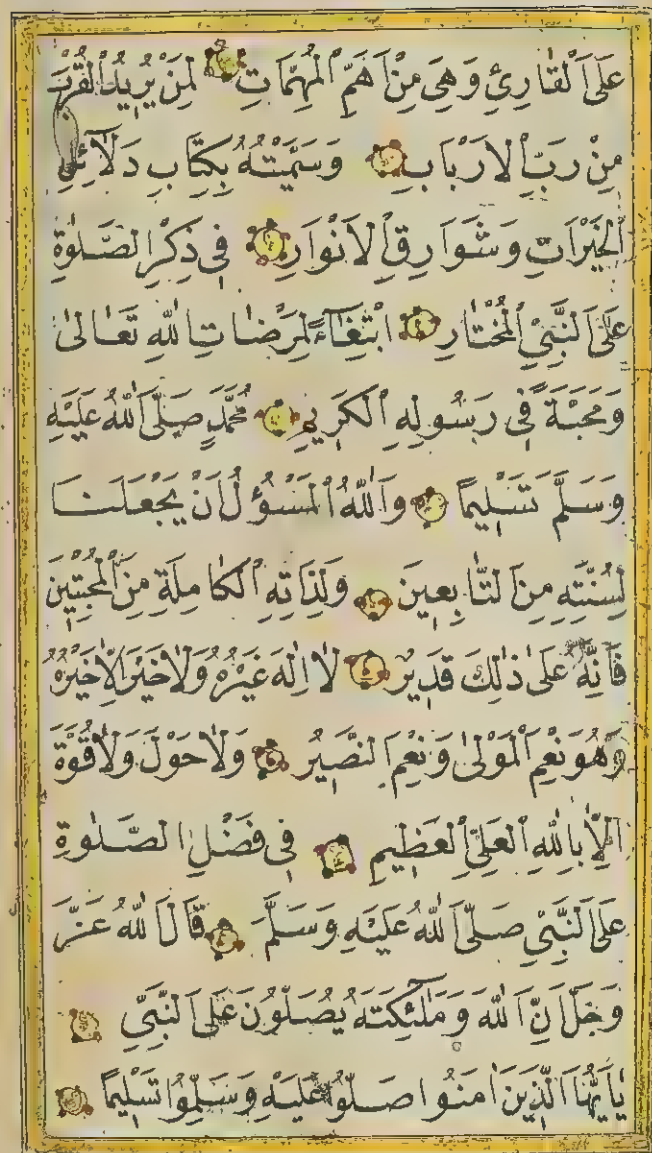 عَلَى الْقَارِئِ وَهِيَ مِنْ اَهَمِّ الْمُهِمَّاتِ لِمَنْ يُرِيدُ الْقُرْبَ
مِنْ رَبِّ الْاَرْبَابِ وَسَمَّيْتُهُ بِكِتَابِ دَلَآئِلِ
الْخَيْرَاتِ وَشَوَارِقِ الْاَنْوَارِ فِي ذِكْرِ الصَّلٰوةِ
عَلَى النَّبِيِّ الْمُخْتَارِ ابْتِغَآءً لِمَرْضَاتِ اللّٰهِ تَعَالٰى
وَمَحَبَّةً فِي رَسُولِهِ الْكَرِيمِ مُحَمَّدٍ صَلَّى اللّٰهُ عَلَيْهِ
وَسَلَّمَ تَسْلِيمًا وَاللّٰهُ الْمَسْؤُلُ اَنْ يَجْعَلَنَا
لِسُنَّتِهِ مِنَ التَّابِعِينَ وَلِذَاتِهِ الْكَامِلَةِ مِنَ الْمُحِبِّينَ
فَاِنَّهُ عَلٰى ذٰلِكَ قَدِيرٌ لَا اِلٰهَ غَيْرُهُ وَلَا خَيْرَ اِلَّا خَيْرُهُ
وَهُوَ نِعْمَ الْمَوْلٰى وَنِعْمَ النَّصِيرُ وَلَا حَوْلَ وَلَا قُوَّةَ
اِلَّا بِاللّٰهِ الْعَلِيِّ الْعَظِيمِ فِي فَضْلِ الصَّلٰوةِ
عَلَى النَّبِيِّ صَلَّى اللّٰهُ عَلَيْهِ وَسَلَّمَ قَالَ اللّٰهُ عَزَّ
وَجَلَّ اِنَّ اللّٰهَ وَمَلٰٓئِكَتَهُ يُصَلُّونَ عَلَى النَّبِيِّ
يَآ اَيُّهَا الَّذِينَ اٰمَنُوا صَلُّوا عَلَيْهِ وَسَلِّمُوا تَسْلِيمًا